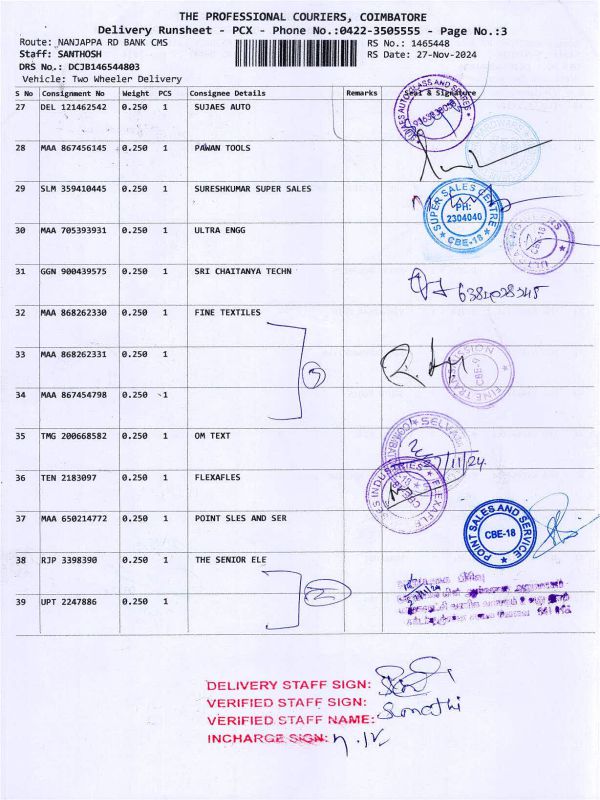 THE PROFESSIONAL COURIERS, COIMBATORE
Delivery Runsheet - PCX - Phone No.:0422-3505555 - Page No.:3
Route: NANJAPPA RD BANK CMS
RS No.: 1465448
Staff: SANTHOSH
RS Date: 27-Nov-2024
DRS No.: DCJB146544803
Vehicle: Two Wheeler Delivery
S No Consignment No Weight PCS Consignee Details Remarks Seal & Signature
27 DEL 121462542 0.250 1 SUJAES AUTO
28 MAA 867456145 0.250 1 PAWAN TOOLS
29 SLM 359410445 0.250 1 SURESHKUMAR SUPER SALES
SUPER SALES CENTRE
PH:
2304040
CBE-18
30 MAA 705393931 0.250 1 ULTRA ENGG
31 GGN 900439575 0.250 1 SRI CHAITANYA TECHN
32 MAA 868262330 0.250 1 FINE TEXTILES
33 MAA 868262331 0.250 1
3
FINE TRANSMISSION
CBE-9
34 MAA 867454798 0.250 1
35 TMG 200668582 0.250 1 OM TEXT
27/11/24
36 TEN 2183097 0.250 1 FLEXAFLES
INDUSTRIES FLEXAFLE
37 MAA 650214772 0.250 1 POINT SLES AND SER
POINT SALES AND SERVICE
CBE-18
38 RJP 3398390 0.250 1 THE SENIOR ELE
2
39 UPT 2247886 0.250 1
DELIVERY STAFF SIGN:
VERIFIED STAFF SIGN:
VERIFIED STAFF NAME: Sumathi
INCHARGE SIGN: